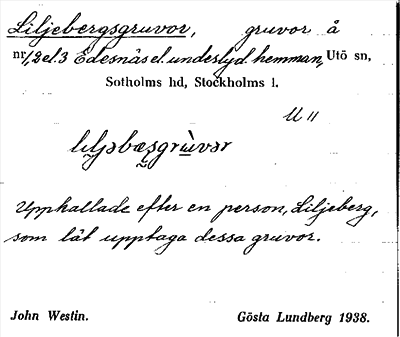 Liljebergsgruvor, gruvor å
nr 1,2 el. 3 Edesnäs el. underlyd. hemman, Utö sn,
Sotholms hd, Stockholms l.
U 11
Upphallade efter en person, Liljeberg,
som lät upptaga dessa gruvor.
John Westin. Gösta Lundberg 1938.